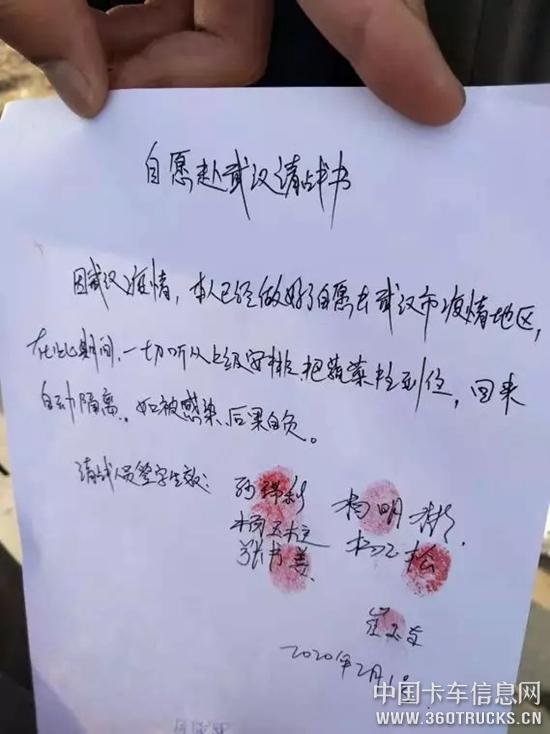 自愿赴武汉请战书
因武汉疫情，本人已经做好了自愿去武汉市疫情地区，
在此期间，一切听从上级安排，把蔬菜拉到位，回来
自动隔离。如被感染后果自负。
请战人员签字生效：
杨明彬
张书姜
松
2020年2月
中国卡车信息网
WWW.360TRUCKS.CN